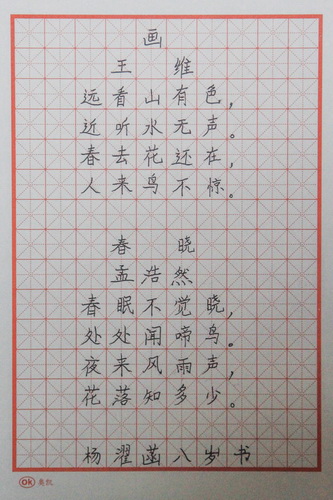 画
王维
远看山有色，
近听水无声。
春去花还在，
人来鸟不惊。
春晓
孟浩然
春眠不觉晓，
处处闻啼鸟。
夜来风雨声，
花落知多少。
杨濯菡八岁书
OK 奥凯